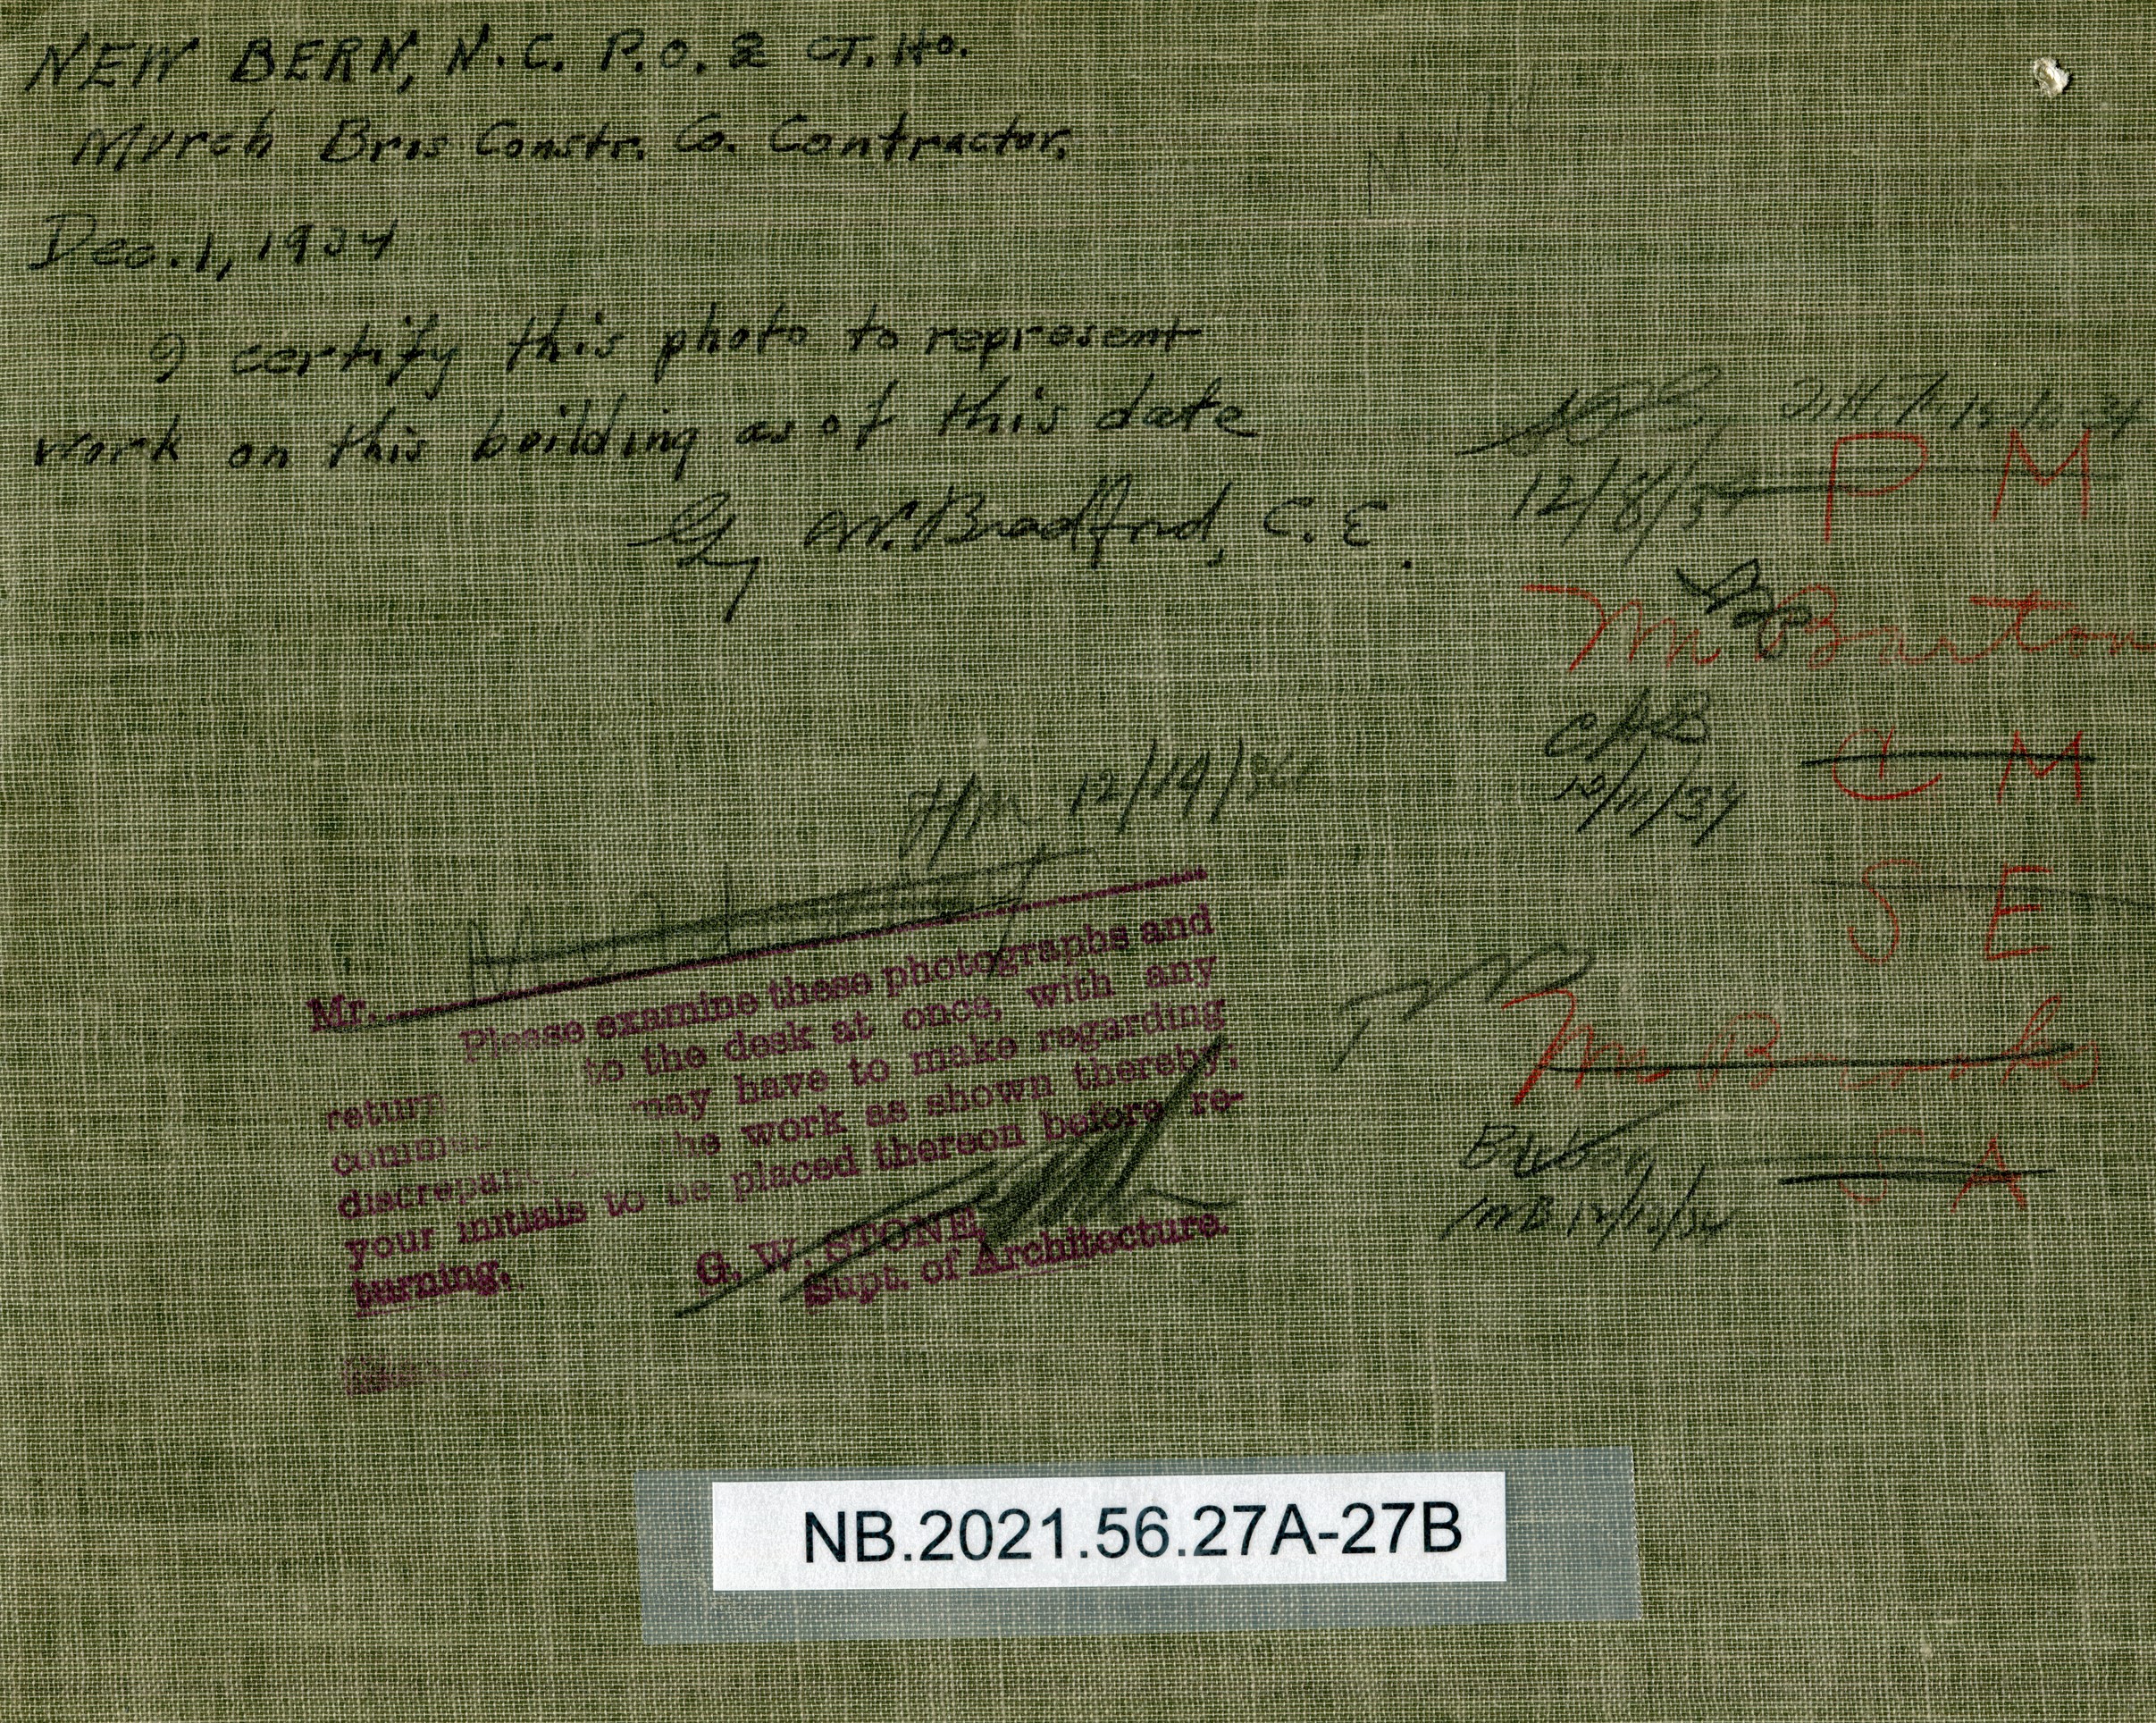 NEW BERN, N.C. P.O. & CT. HO.
Murch Bros Constr. Co. Contractor.
Dec. 1, 1934
I certify this photo to represent
work on this building as of this date
W. Bradford, C.E.
12/8/34
P M
M Barton
CAB
12/11/34
C M
HM 12/14/34
S E
Mr.
Please examine these photographs and
return to the desk at once, with any
may have to make regarding
the work as shown thereby;
your initials to be placed thereon before re-
turning.
G. W. STONE,
Supt. of Architecture.
M Brooks
S A
NB.2021.56.27A-27B